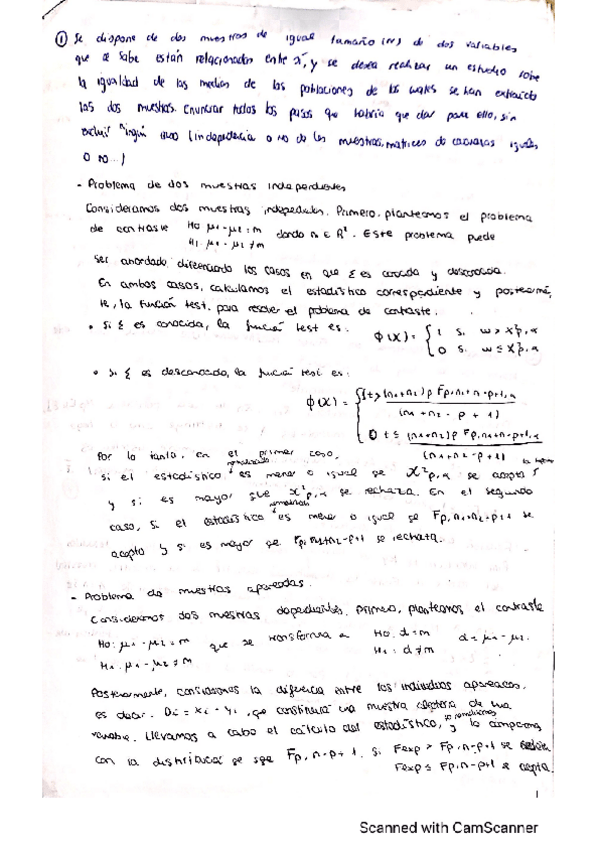 ① Se dispone de dos muestras de igual tamaño (n) de dos variables
que se sabe están relacionadas entre sí, y se desea realizar un estudio sobre
la igualdad de las medias de las poblaciones de las cuales se han extraído
las dos muestras. Enunciar todos los pasos que habría que dar para ello, sin
excluir ningún caso (independencia o no de las muestras, matrices de covarianzas iguales
o no...)
- Problema de dos muestras independientes
Consideramos dos muestras independientes. Primero, planteamos el problema
de contraste H0 μ1-μ2 = m
H1. μ1-μ2 ≠ m
. Este problema puede
ser abordado diferenciando los casos en que Σ es conocida y desconocida.
En ambos casos, calculamos el estadístico correspondiente y posteormen
te, la función test, para resolver el problema de contraste.
• Si Σ es conocida, la función test es:
ϕ(X) = { 1 si w > X²p,α
0 si w ≤ X²p,α
• Si Σ es desconocida, la función test es:
ϕ(X) =
(n1+n2 - p + 1)
(n1+n2-p+1)
Por lo tanto, en el primer caso,
si el estadístico es menor o igual que X²p,α se acepta
y si es mayor que X²p,α se rechaza. En el segundo
caso, si el estadístico es menor o igual que Fp,n1+n2-p+1 se
acepta y si es mayor que Fp,n1+n2-p+1 se rechaza.
- Problema de muestras apareadas.
Consideremos dos muestras dependientes. Primero, planteamos el contraste
H0: μ1-μ2 = m
H1: μ1-μ2 ≠ m
que se transforma a
H0: d=m
H1: d≠m
d = μ1-μ2.
Posteriormente, consideramos la diferencia entre los individuos apareados,
es decir, Di = Xi - Yi, que constituirá una muestra aleatoria de una
variable. Llevamos a cabo el cálculo del estadístico, y lo comparamos
con la distribución que sigue Fp,n-p+1. Si Fexp > Fp,n-p+1 se
Fexp ≤ Fp,n-p+1 se acepta.
1
Scanned with CamScanner